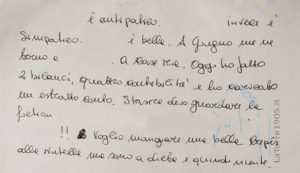 è antipatico. Invece è
Simpatico. è bella. A Giugno me ne
torno e a casa mia. Oggi ho fatto
2 bilanci, quattro contabilità e ho
un estratto conto. Stasera devo guardare la
fiction
!! Voglio mangiare una bella
alla Nutella ma sono a dieta e quindi niente.
LaTorre1905.it